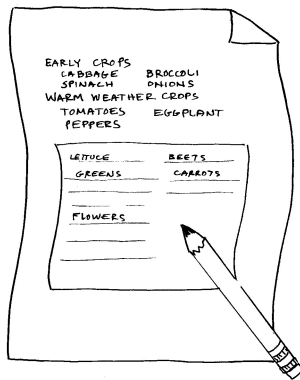 EARLY CROPS
CABBAGE BROCCOLI
SPINACH ONIONS
WARM WEATHER CROPS
TOMATOES EGGPLANT
PEPPERS
LETTUCE BEETS
GREENS CARROTS
FLOWERS